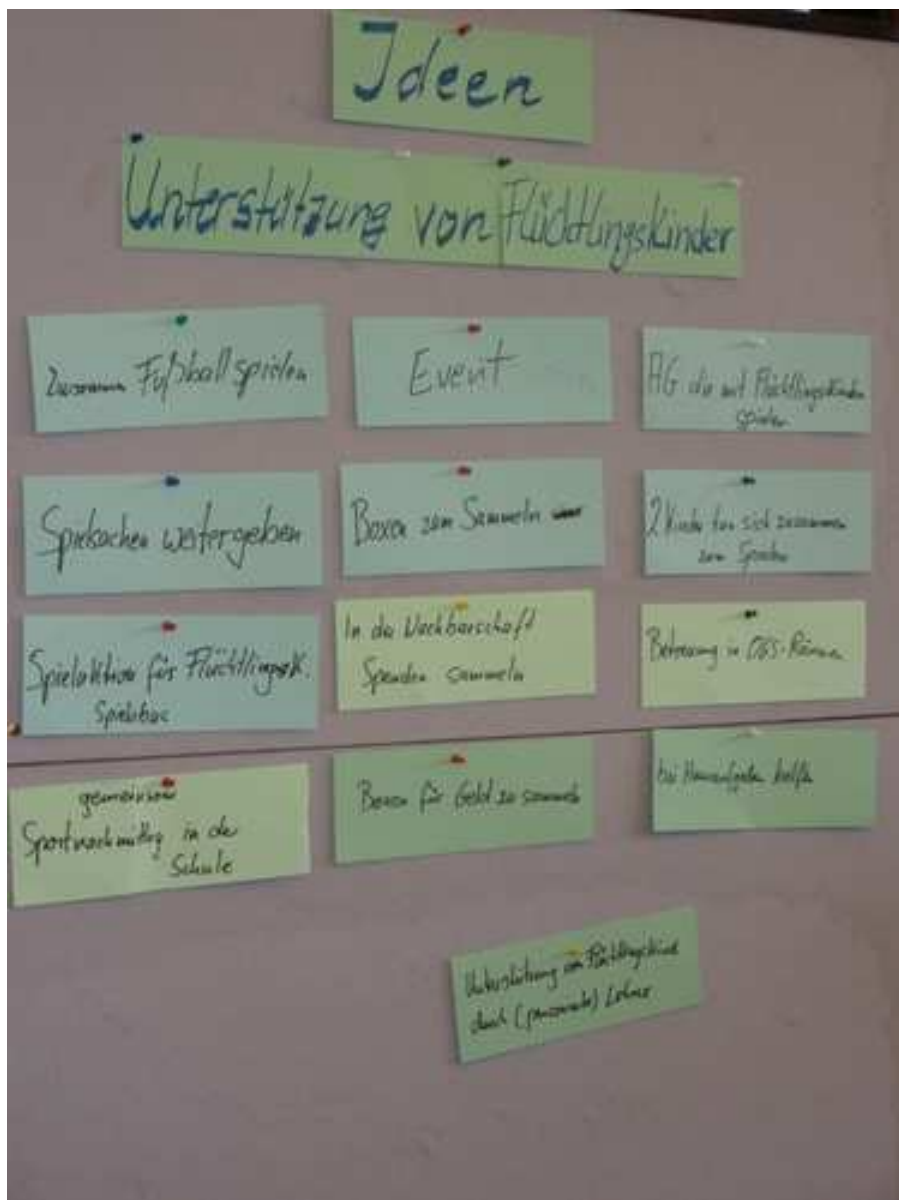 Ideen
Unterstützung von Flüchtlingskinder
Zusammen Fußball spielen
Event
AG die mit Flüchtlingskinder
spielen
Spielsachen weitergeben
Boxen zum Sammeln
2 Kinder tun sich zusammen
zum Spielen
Spielaktion für Flüchtlingsk.
In der Nachbarschaft
Spenden sammeln
Betreuung in OGS-Räumen
gemeinsam
Sportnachmittag in der
Schule
Boxen für Geld zu sammeln
bei Hausaufgaben helfen
Unterstützung von Flüchtlingskinder
durch (pensionierte) Lehrer